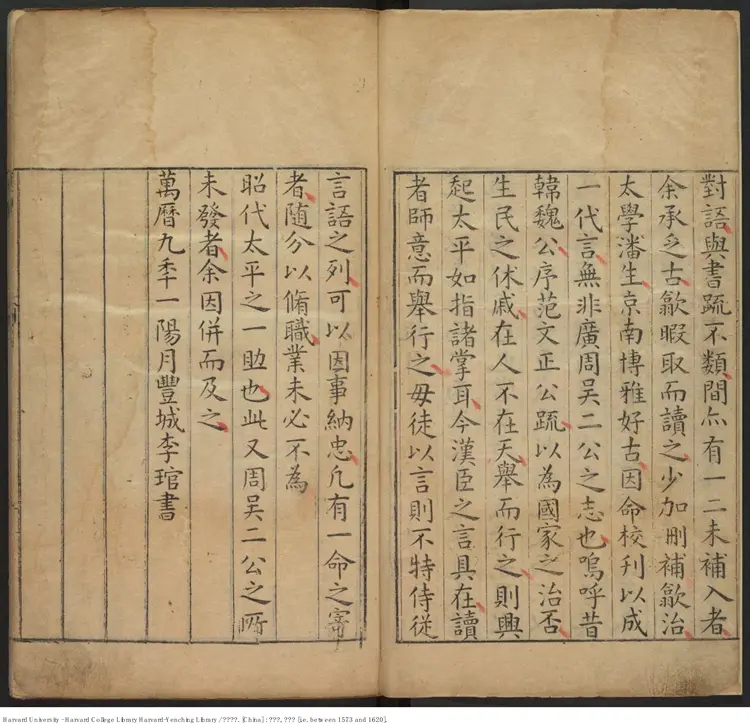 對語與書疏不類間亦有一二未補入者
余承乏古歙暇取而讀之少加刪補歙治
太學潘生京南博雅好古因命校刋以成
一代言無非廣周吴二公之志也嗚呼昔
韓魏公序范文正公疏以為國家之治否
生民之休戚在人不在天舉而行之則興
起太平如指諸掌耳今漢臣之言具在讀
者師意而舉行之毋徒以言則不特侍從
言語之列可以因事納忠凡有一命之寄
者随分以脩職業未必不為
昭代太平之一助也此又周吴二公之所
未發者余因併而及之
萬曆九秊一陽月豐城李琯書
Harvard University - Harvard College Library Harvard-Yenching Library / ????. [China] : ???, ??? [i.e. between 1573 and 1620].